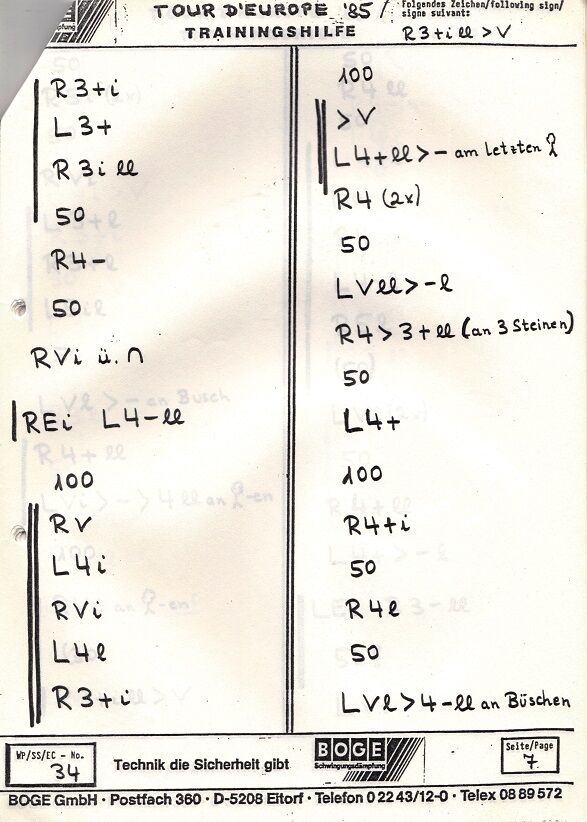 TOUR D'EUROPE '85
TRAININGSHILFE
Folgendes Zeichen/following sign/
signe suivant:
R3+i ll > V
R3+i
L3+
R3i ll
50
R4-
50
RVi ü. ∩
REi L4-ll
100
RV
L4i
RVi
L4l
R3+i
100
> V
L4+ll>- am letzten
R4 (2x)
50
LVll>-l
R4>3+ll (an 3 Steinen)
50
L4+
100
R4+i
50
R4l
50
LVl>4-ll an Büschen
WP/SS/EC - No.
34
Technik die Sicherheit gibt
BOGE
Schwingungsdämpfung
Seite/Page
7
BOGE GmbH · Postfach 360 · D-5208 Eitorf · Telefon 0 22 43/12-0 · Telex 08 89 572